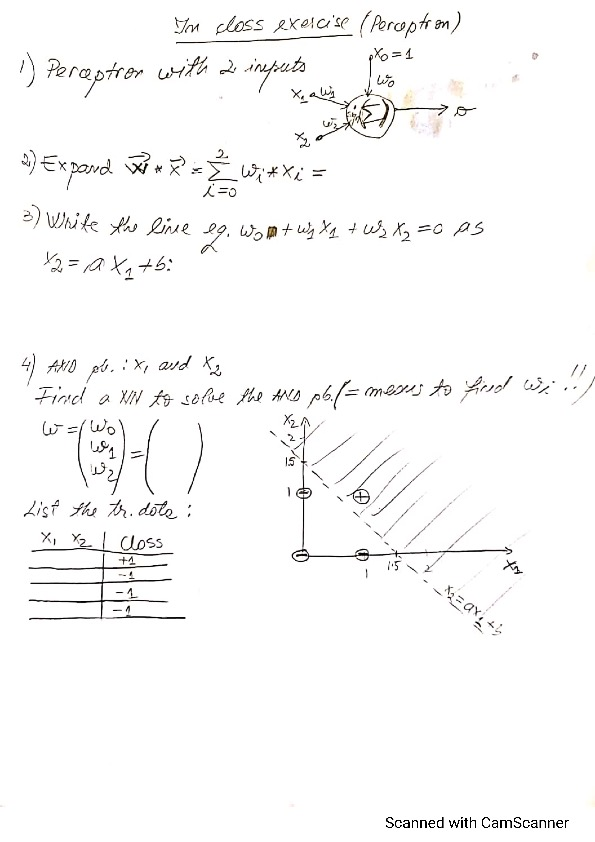 In class exercise (Perceptron)
1) Perceptron with 2 inputs
x0 = 1
w0
x1 w1
Σ
o
w2
x2
2) Expand w * x = Σ wi * xi =
2
i=0
3) Write the line eq. w0 + w1 x1 + w2 x2 = 0 as
x2 = a x1 + b:
4) AND pb. : x1 and x2
Find a NN to solve the AND pb. (= means to find wi !!)
w = (w0 w1 w2) = ( )
List the tr. data :
x1 x2 | class
+1
-1
-1
-1
x2
2
1.5
1
+
-
-
-
1
1.5
2
x1
x2 = a x1 + b
Scanned with CamScanner